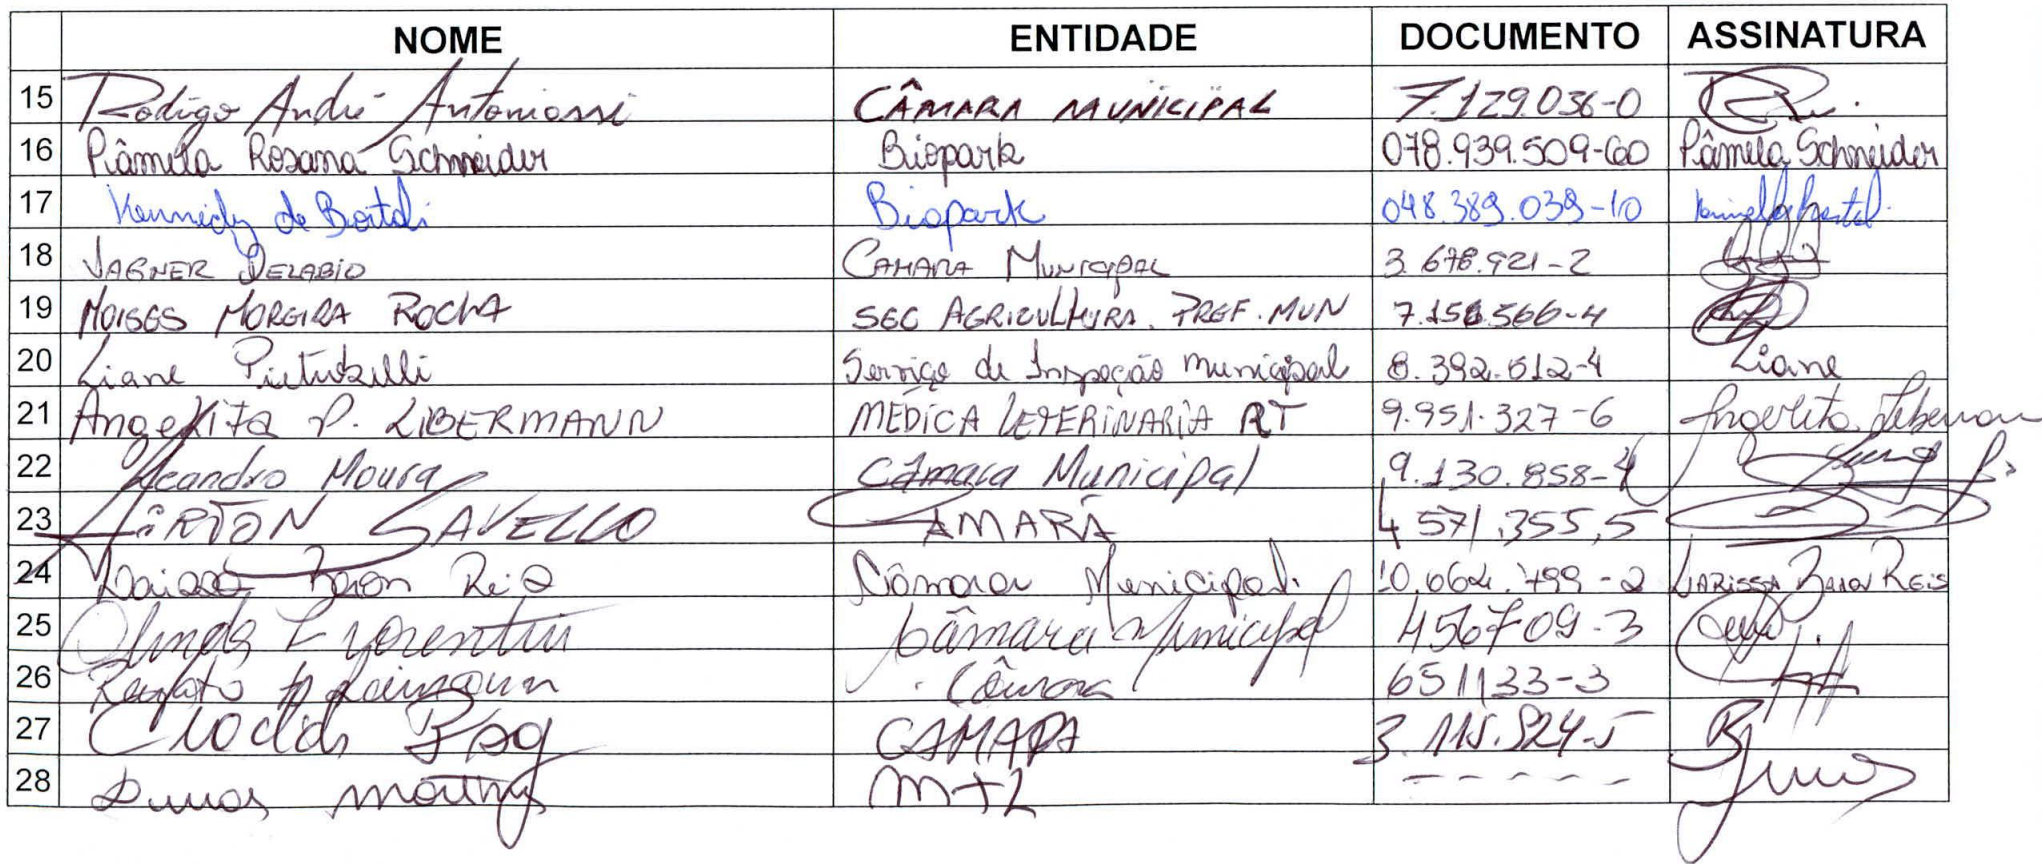 NOME ENTIDADE DOCUMENTO ASSINATURA
15 Rodrigo André Antoniassi CÂMARA MUNICIPAL 7.129.036-0
16 Pâmela Rosana Schneider Biopark 078.939.509-60 Pâmela Schneider
17 Kennedy de Bortoli Biopark 048.389.039-10
18 VAGNER DELABIO CAMARA MUNICIPAL 3.678.921-2
19 MOISES MOREIRA ROCHA SEC AGRICULTURA. PREF. MUN 7.156.566-4
20 Liane Serviço de Inspeção Municipal 8.392.612-4 Liane
21 Angelita P. LIBERMANN MÉDICA VETERINÁRIA RT 9.951.327-6 Angelita
22 Leandro Moura Câmara Municipal 9.130.858-4
23 AIRTON SAVELLO CAMARA 4 571.355,5
24 Larissa Baron Reis Câmara Municipal. 10.062.799-2 LARISSA BARON REIS
25 Olinda Fiorentin Câmara Municipal 456709-3
26 Câmara 651133-3
27 CAMARA 3.115.524-5
28 - - - - -